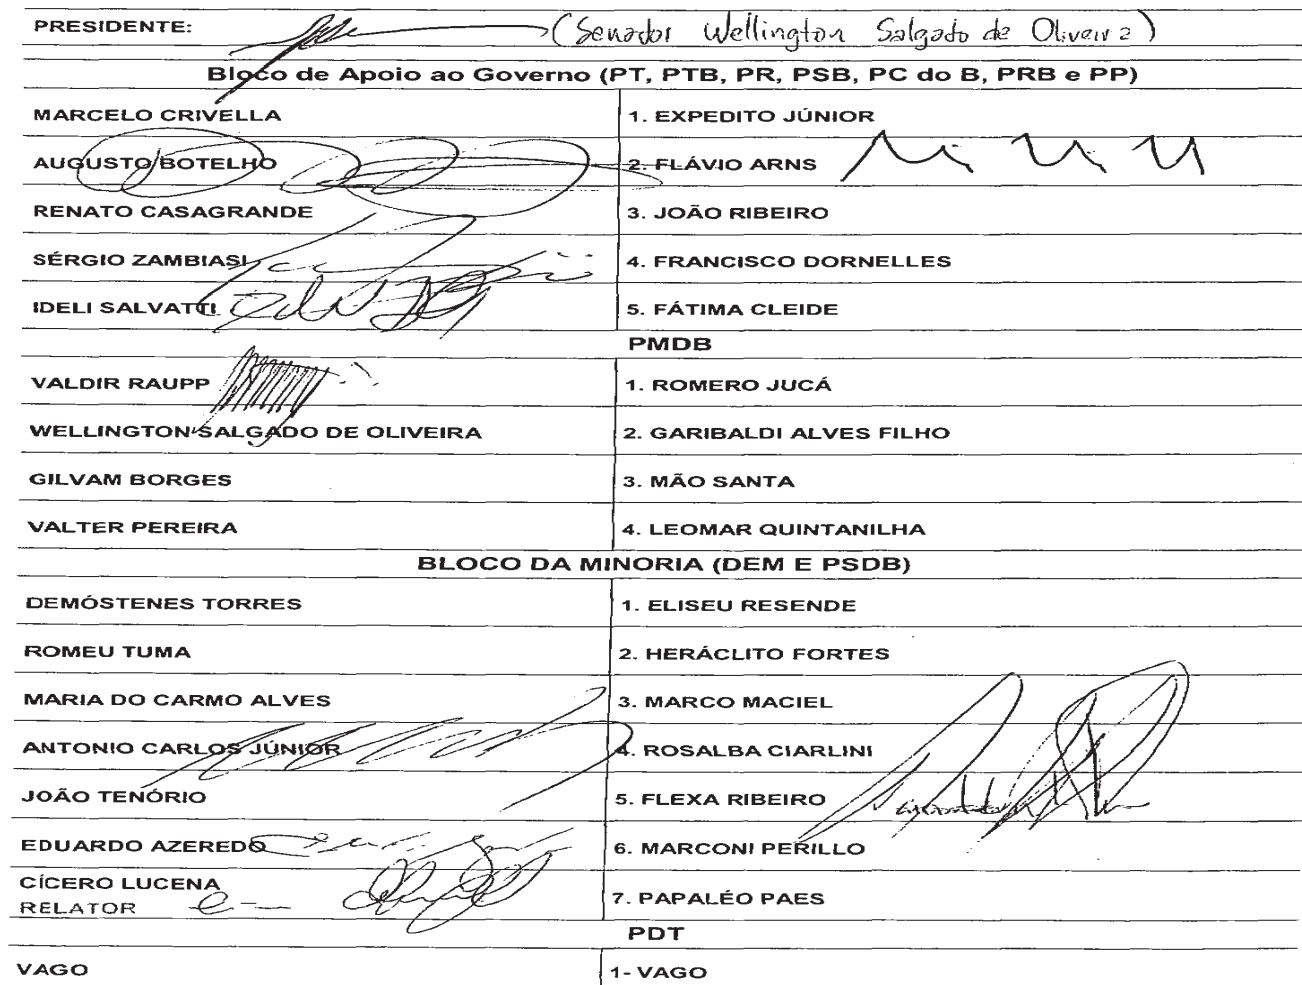 PRESIDENTE: (Senador Wellington Salgado de Oliveira)
Bloco de Apoio ao Governo (PT, PTB, PR, PSB, PC do B, PRB e PP)
MARCELO CRIVELLA 1. EXPEDITO JÚNIOR
AUGUSTO BOTELHO 2. FLÁVIO ARNS
RENATO CASAGRANDE 3. JOÃO RIBEIRO
SÉRGIO ZAMBIASI 4. FRANCISCO DORNELLES
IDELI SALVATTI 5. FÁTIMA CLEIDE
PMDB
VALDIR RAUPP 1. ROMERO JUCÁ
WELLINGTON SALGADO DE OLIVEIRA 2. GARIBALDI ALVES FILHO
GILVAM BORGES 3. MÃO SANTA
VALTER PEREIRA 4. LEOMAR QUINTANILHA
BLOCO DA MINORIA (DEM E PSDB)
DEMÓSTENES TORRES 1. ELISEU RESENDE
ROMEU TUMA 2. HERÁCLITO FORTES
MARIA DO CARMO ALVES 3. MARCO MACIEL
ANTONIO CARLOS JÚNIOR 4. ROSALBA CIARLINI
JOÃO TENÓRIO 5. FLEXA RIBEIRO
EDUARDO AZEREDO 6. MARCONI PERILLO
CÍCERO LUCENA 7. PAPALÉO PAES
RELATOR
PDT
VAGO 1- VAGO